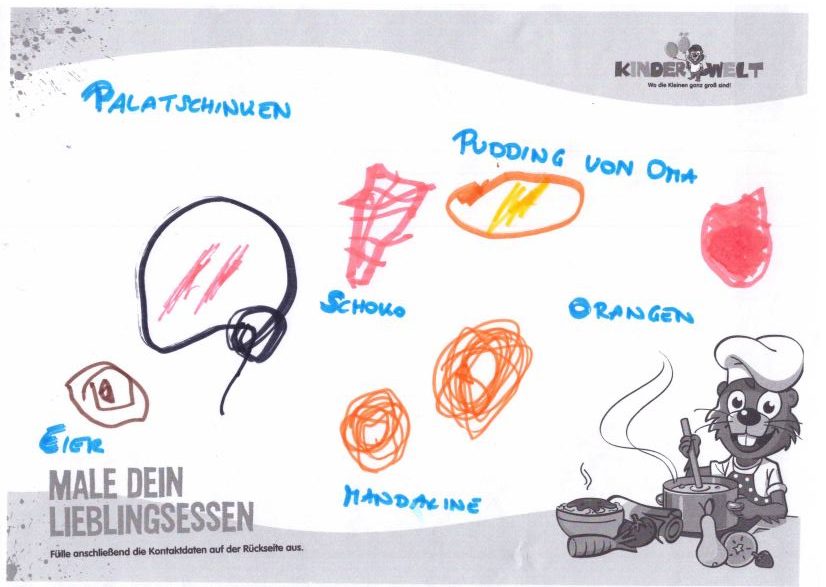 KINDERWELT
Wo die Kleinen ganz groß sind!
PALATSCHINKEN
PUDDING VON OMA
SCHOKO
ORANGEN
EIER
MANDARINE
MALE DEIN
LIEBLINGSESSEN
Fülle anschließend die Kontaktdaten auf der Rückseite aus.